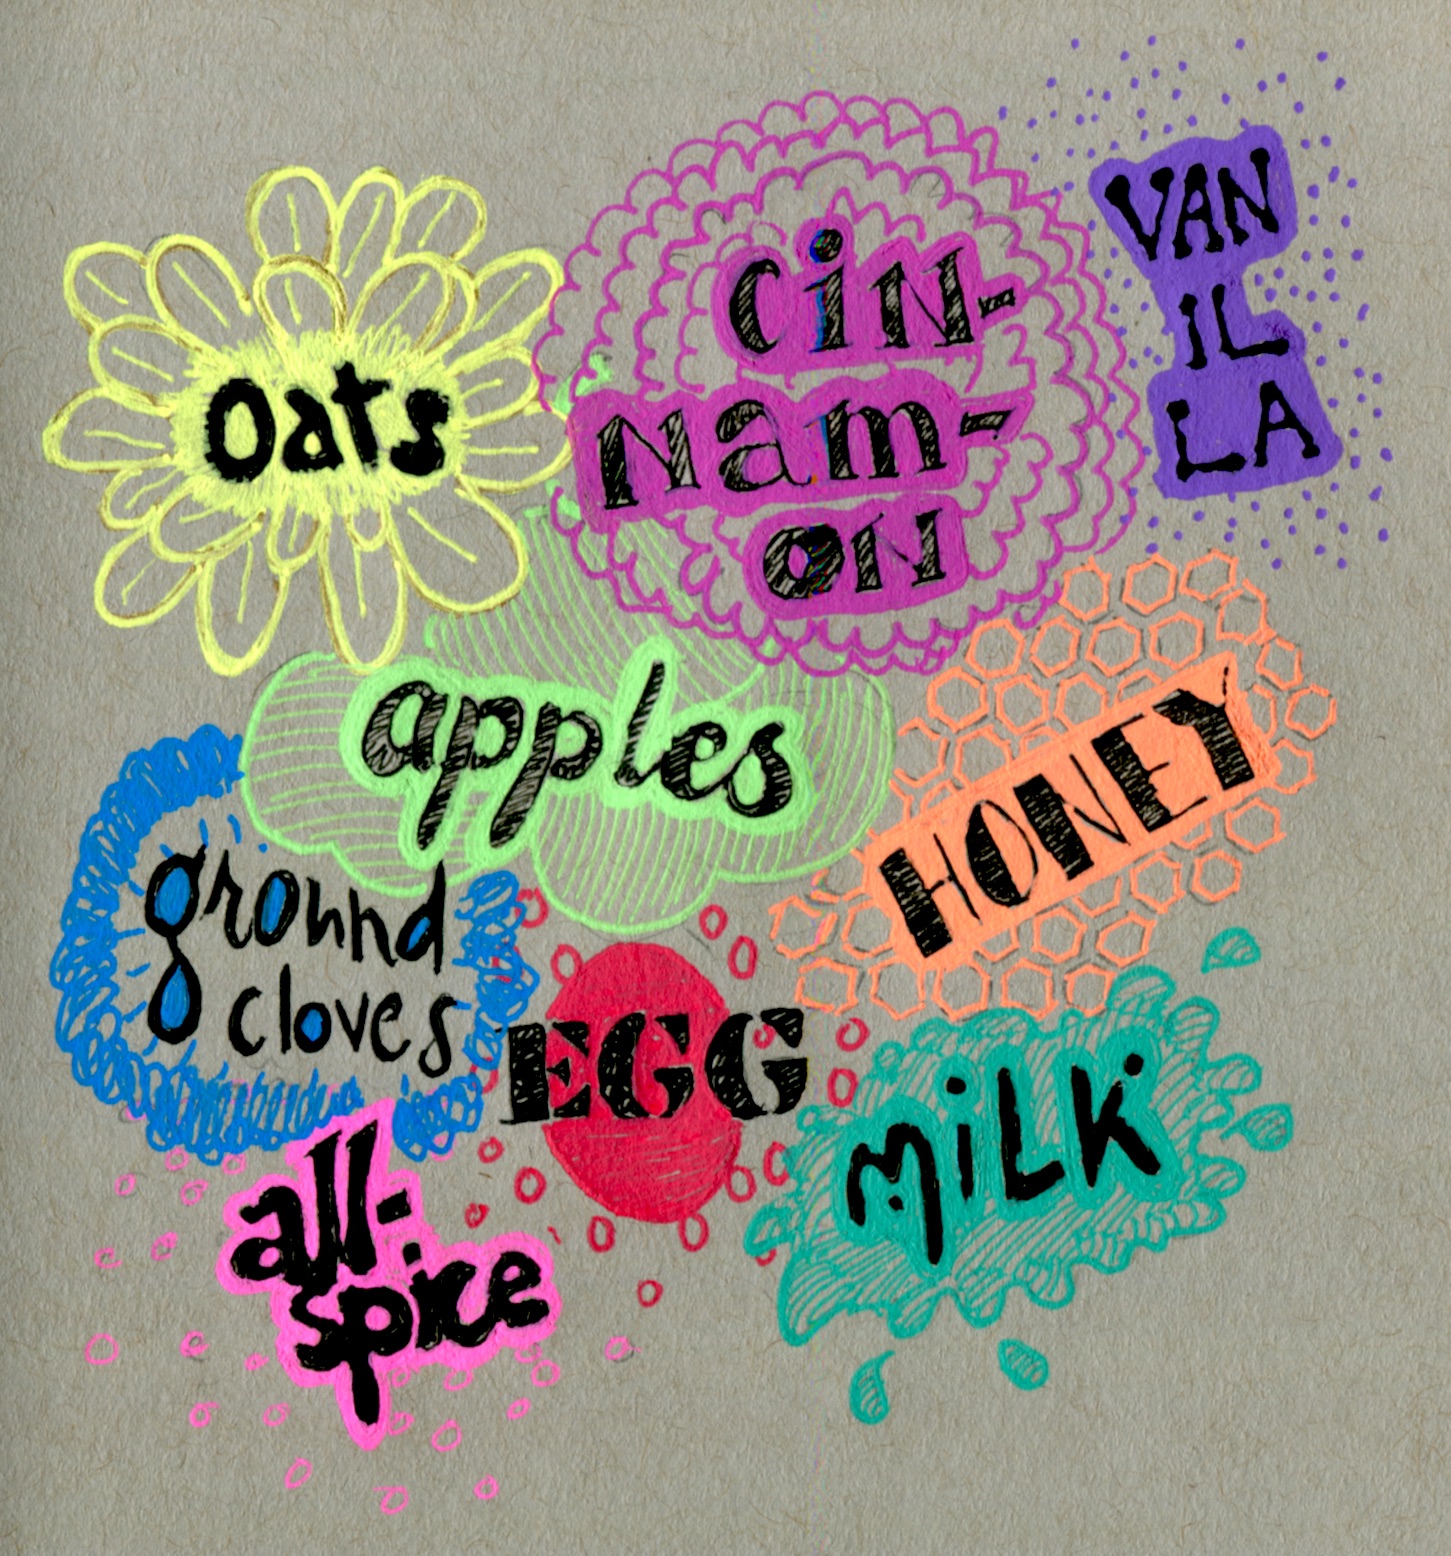 oats
cin-
nam-
on
VAN
IL
LA
apples
HONEY
ground
cloves
EGG
MiLK
all-
spice